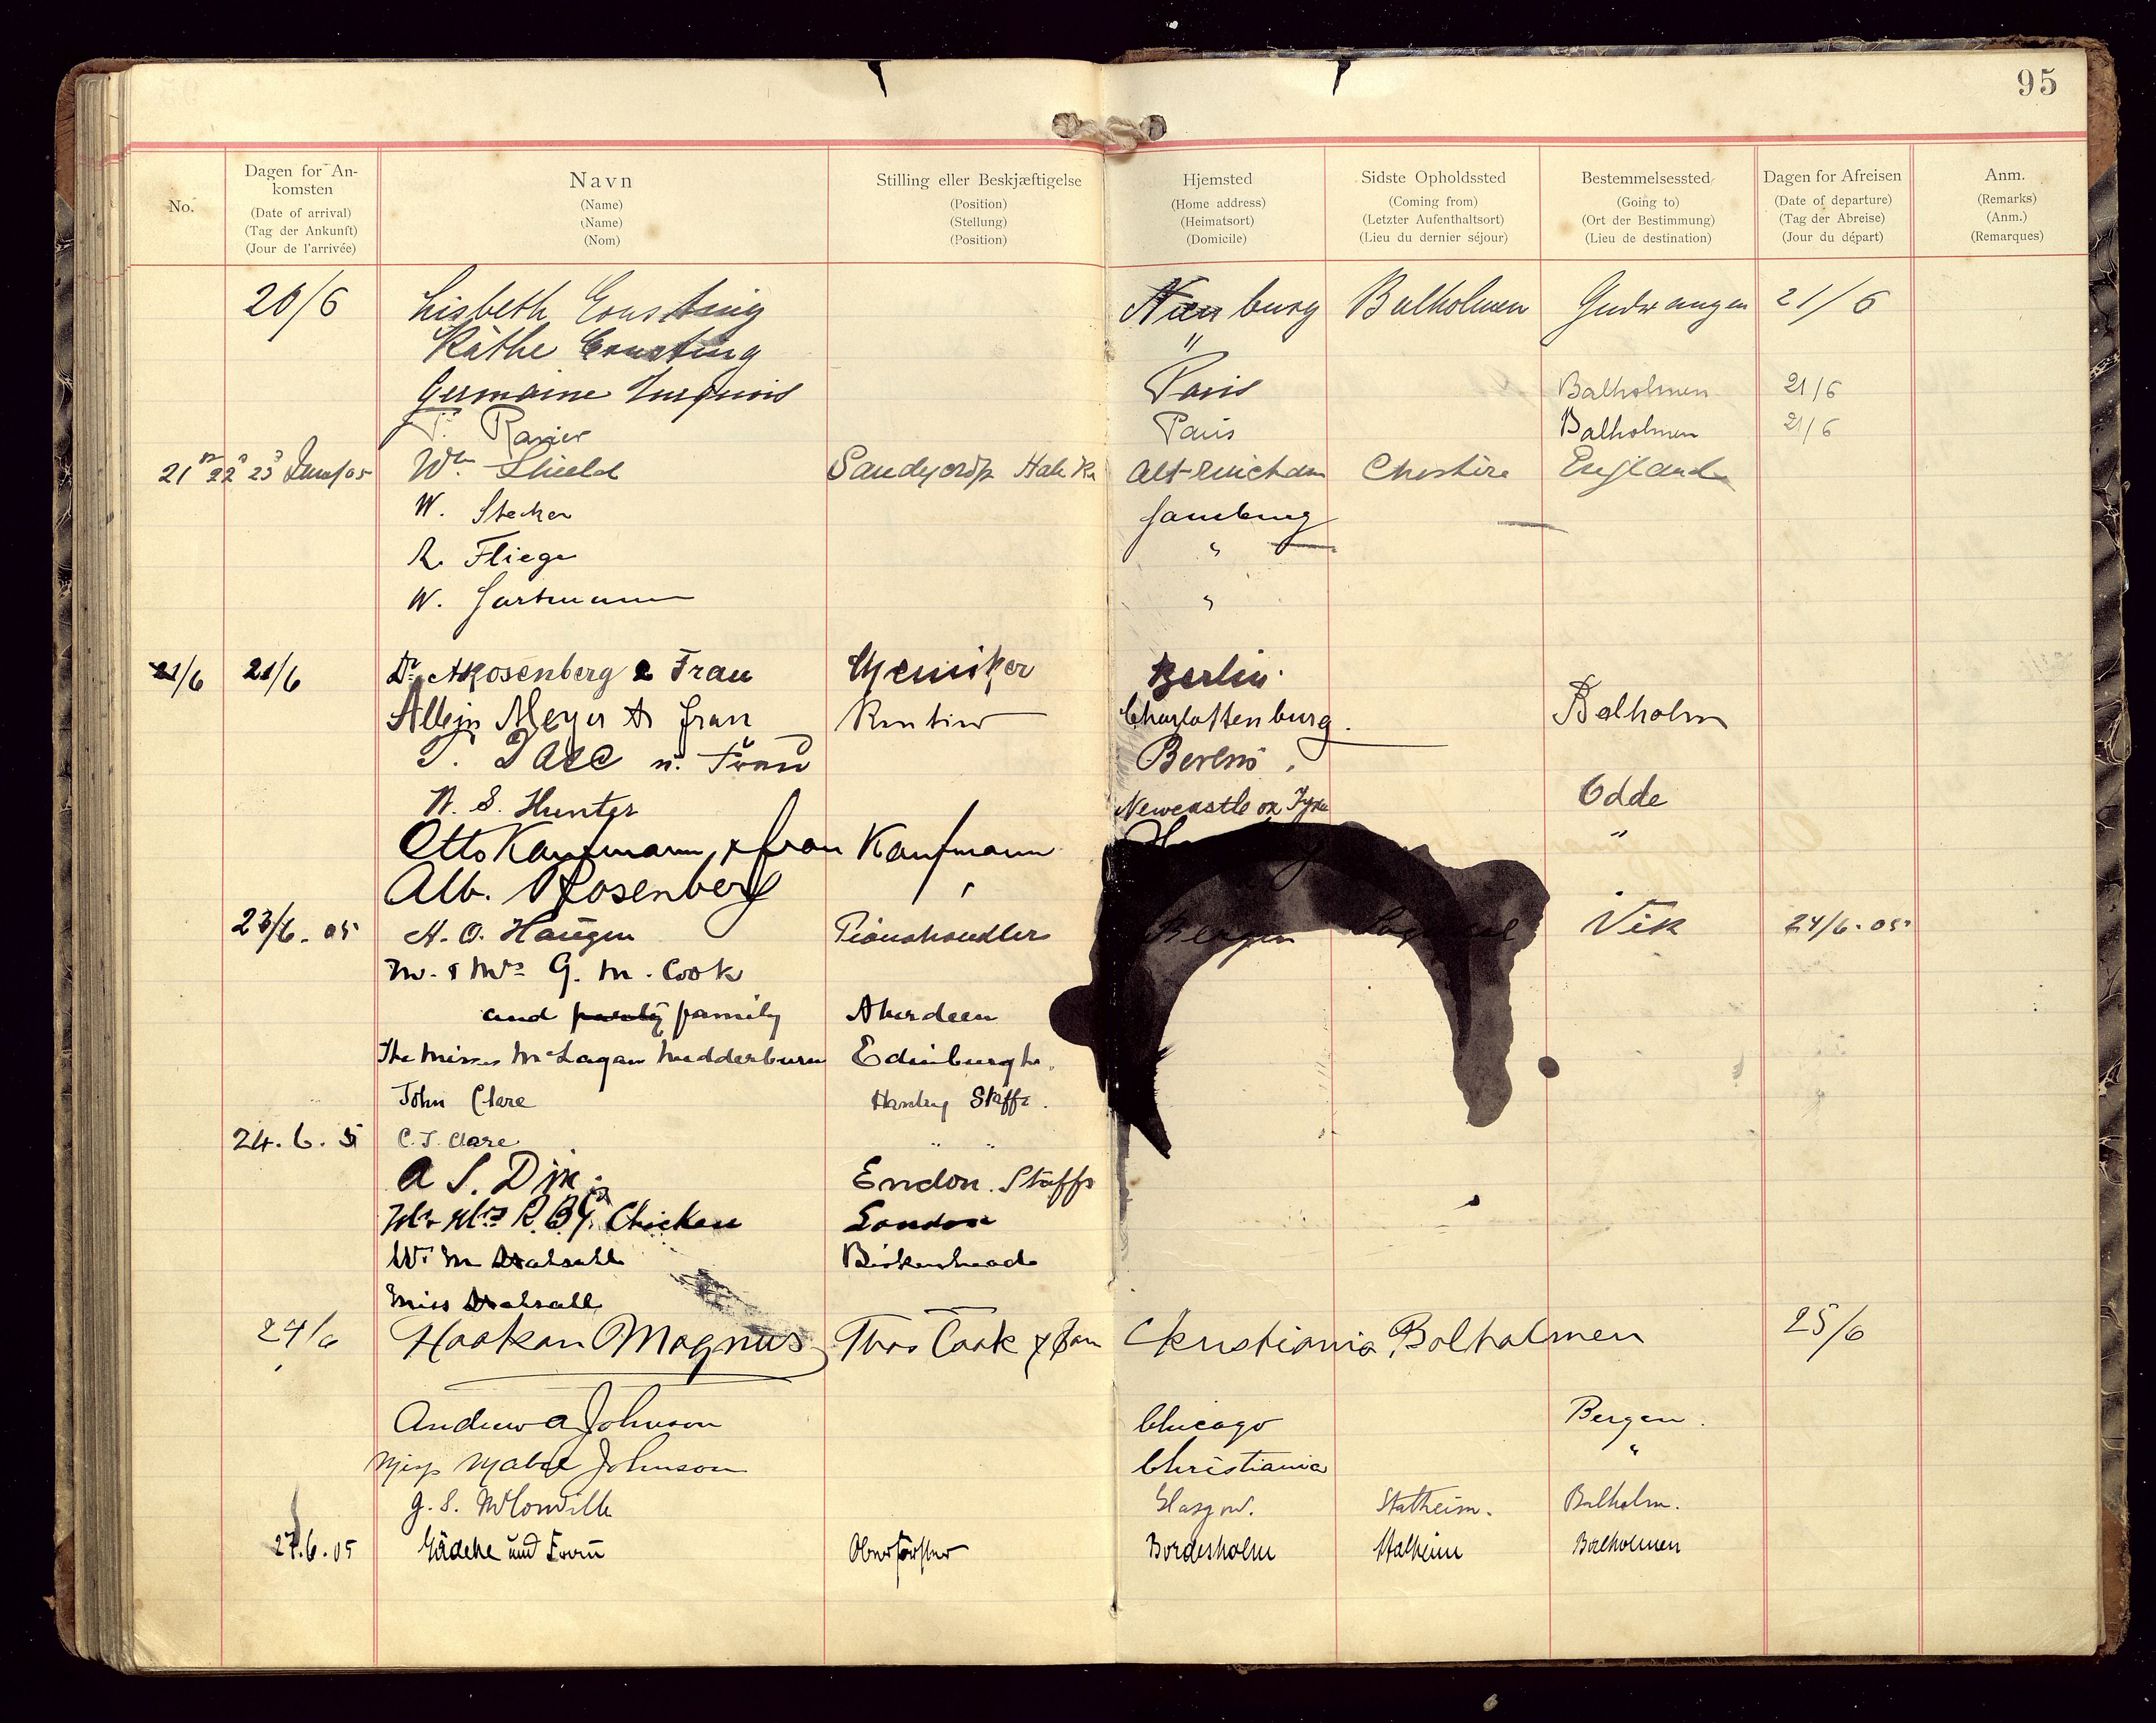 95
No.
Dagen for An-
komsten
(Date of arrival)
(Tag der Ankunft)
(Jour de l'arrivée)
Navn
(Name)
(Name)
(Nom)
Stilling eller Beskjæftigelse
(Position)
(Stellung)
(Position)
Hjemsted
(Home address)
(Heimatsort)
(Domicile)
Sidste Opholdssted
(Coming from)
(Letzter Aufenthaltsort)
(Lieu du dernier séjour)
Bestemmelsessted
(Going to)
(Ort der Bestimmung)
(Lieu de destination)
Dagen for Afreisen
(Date of departure)
(Tag der Abreise)
(Jour du départ)
Anm.
(Remarks)
(Anm.)
(Remarques)
20/6 Lisbeth Balholmen Gudvangen 21/6
Käthe "
Germaine Paris Balholmen 21/6
Paris Balholmen 21/6
21 22 23 June/05 Wm Shield Altrincham Cheshire England
W. Stecker Hamburg
R. Fliege "
W. Hartmann "
21/6 21/6 Dr. A Rosenberg & Frau Chemiker Berlin.
Meyer & Frau Rentier Charlottenburg. Balholm
u. Frau Berlin.
W. S. Hunter Newcastle on Tyne Odde
Otto Kaufmann, & frau Kaufmann "
Alb. Rosenberg "
23/6. 05 H. O. Haugen Pianohandler Bergen Vik 24/6. 05
Mr. & Mrs G. M. Cook
and party family Aberdeen
The Misses McLagan Wedderburn Edinburgh.
John Clare Hanley Staffs.
24. 6. 5 C. J. Clare " "
A S. Dix. Endon. Staffs
Mr & Mrs R. B. Y. Chicken London
Wm Halsall Birkenhead
Miss Halsall
24/6 Haakan Magnus Thos Cook & Son Christiania Balholmen 25/6
Andrew A Johnson Chicago Bergen.
Miss Mabel Johnson Christiania "
G. S. Glasgow. Stalheim. Balholm.
27.6.05 Gädeke und Frau Oberförster Bordesholm Stalheim Balholmen